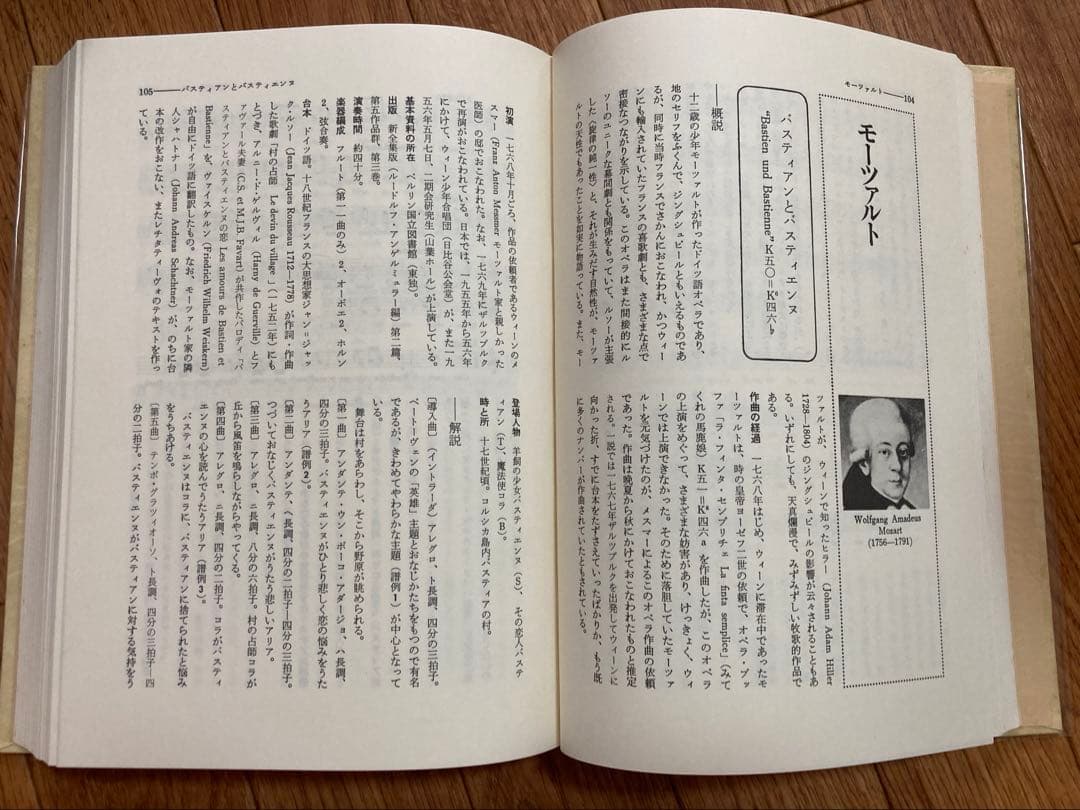 モーツァルト――104
モーツァルト
バスティアンとバスティエンヌ
“Bastien und Bastienne” K五〇=K⁶四六b
Wolfgang Amadeus
Mozart
(1756—1791)
――概説
十二歳の少年モーツァルトが作ったドイツ語オペラであり、
地のセリフをふくんで、ジングシュピールともいえるものであ
るが、同時に当時フランスでさかんにおこなわれ、かつウィー
ンにも輸入されていたフランスの喜歌劇とも、さまざまな点で
密接なつながりを示している。このオペラはまた間接的にル
ソーのユニークな幕間劇とも関係をもっていて、ルソーが主張
した〈旋律の純一性〉と、それが生みだす自然性が、モーツァ
ルトの天性でもあったことを如実に物語っている。また、モー
ツァルトが、ウィーンで知ったヒラー (Johann Adam Hiller
1728—1804) のジングシュピールの影響が云々されることもあ
る。いずれにしても、天真爛漫で、みずみずしい牧歌的作品で
ある。
作曲の経過 一七六八年はじめ、ウィーンに滞在中であったモ
ーツァルトは、時の皇帝ヨーゼフ二世の依頼で、オペラ・ブッ
ファ「ラ・フィンタ・センプリチェ La finta semplice」(みて
くれの馬鹿娘) K五一=K⁶四六a を作曲したが、このオペラ
の上演をめぐって、さまざまな妨害があり、けっきょく、ウィ
ーンでは上演できなかった。そのために落胆していたモーツァ
ルトを元気づけたのが、メスマーによるこのオペラ作曲の依頼
であった。作曲は晩夏から秋にかけておこなわれたものと推定
される。一説では一七六七年ザルツブルクを出発してウィーンに
向かった折、すでに台本をたずさえていったばかりか、もう既
に多くのナンバーが作曲されていたともされている。
105――バスティアンとバスティエンヌ
初演 一七六八年十月ごろ、作品の依頼者であるウィーンのメ
スマー (Franz Anton Messmer モーツァルト家と親しかった
医師) の邸でおこなわれた。なお、一七六九年にザルツブルク
で再演がおこなわれている。日本では、一九五五年から五六年
にかけて、ウィーン少年合唱団 (日比谷公会堂) が、また一九
五六年五月七日、二期会研究生 (山葉ホール) が上演している。
基本資料の所在 ベルリン国立図書館 (東独)。
出版 新全集版 (ルードルフ・アンゲルミュラー編) 第二篇、
第五作品群、第三巻。
演奏時間 約四十分。
楽器編成 フルート (第一一曲のみ) 2、オーボエ2、ホルン
2、弦合奏。
台本 ドイツ語。十八世紀フランスの大思想家ジャン=ジャッ
ク・ルソー (Jean Jacques Rousseau 1712—1778) が作詞・作曲
した歌劇「村の占師 Le devin du village」(一七五二年) にも
とづき、アルニー・ド・ゲルヴィル (Harny de Guerville) とフ
ァヴァール夫妻 (C.S. et M.J.B. Favart) が共作したパロディ「バ
スティアンとバスティエンヌの恋 Les amours de Bastien et
Bastienne」を、ヴァイスケルン (Friedrich Wilhelm Weiskern)
が自由にドイツ語に翻訳したもの。なお、モーツァルト家の隣
人シャハトナー (Johann Andreas Schachtner) が、のちに台
本の改作をおこない、またレチタティーヴォのテキストを作っ
ている。
登場人物 羊飼の少女バスティエンヌ (S)、その恋人バステ
ィアン (T)、魔法使コラ (B)。
時と所 十七世紀頃。コルシカ島内バスティアの村。
――解説
〔導入曲〕 (イントラーダ) アレグロ、ト長調、四分の三拍子。
ベートーヴェンの「英雄」主題とおなじかたちをもつので有名
であるが、きわめてやわらかな主題 (譜例1) が中心となって
いる。
舞台は村をあらわし、そこから野原が眺められる。
〔第一曲〕 アンダンテ・ウン・ポーコ・アダージョ、ハ長調、
四分の三拍子。バスティエンヌがひとり悲しく恋の悩みをうた
うアリア (譜例2)。
〔第二曲〕 アンダンテ、ヘ長調、四分の二拍子―四分の三拍子。
つづいておなじく、バスティエンヌがうたう悲しいアリア。
〔第三曲〕 アレグロ、ニ長調、八分の六拍子。村の占師コラが
丘から風笛を鳴らしながらやってくる。
〔第四曲〕 アレグロ、ニ長調、四分の二拍子。コラがバスティ
エンヌの心を読んでうたうアリア (譜例3)。
バスティエンヌはコラに、バスティアンに捨てられたと悩み
をうちあける。
〔第五曲〕 テンポ・グラツィオーソ、ト長調、四分の三拍子―四
分の二拍子。バスティエンヌがバスティアンに対する気持をう